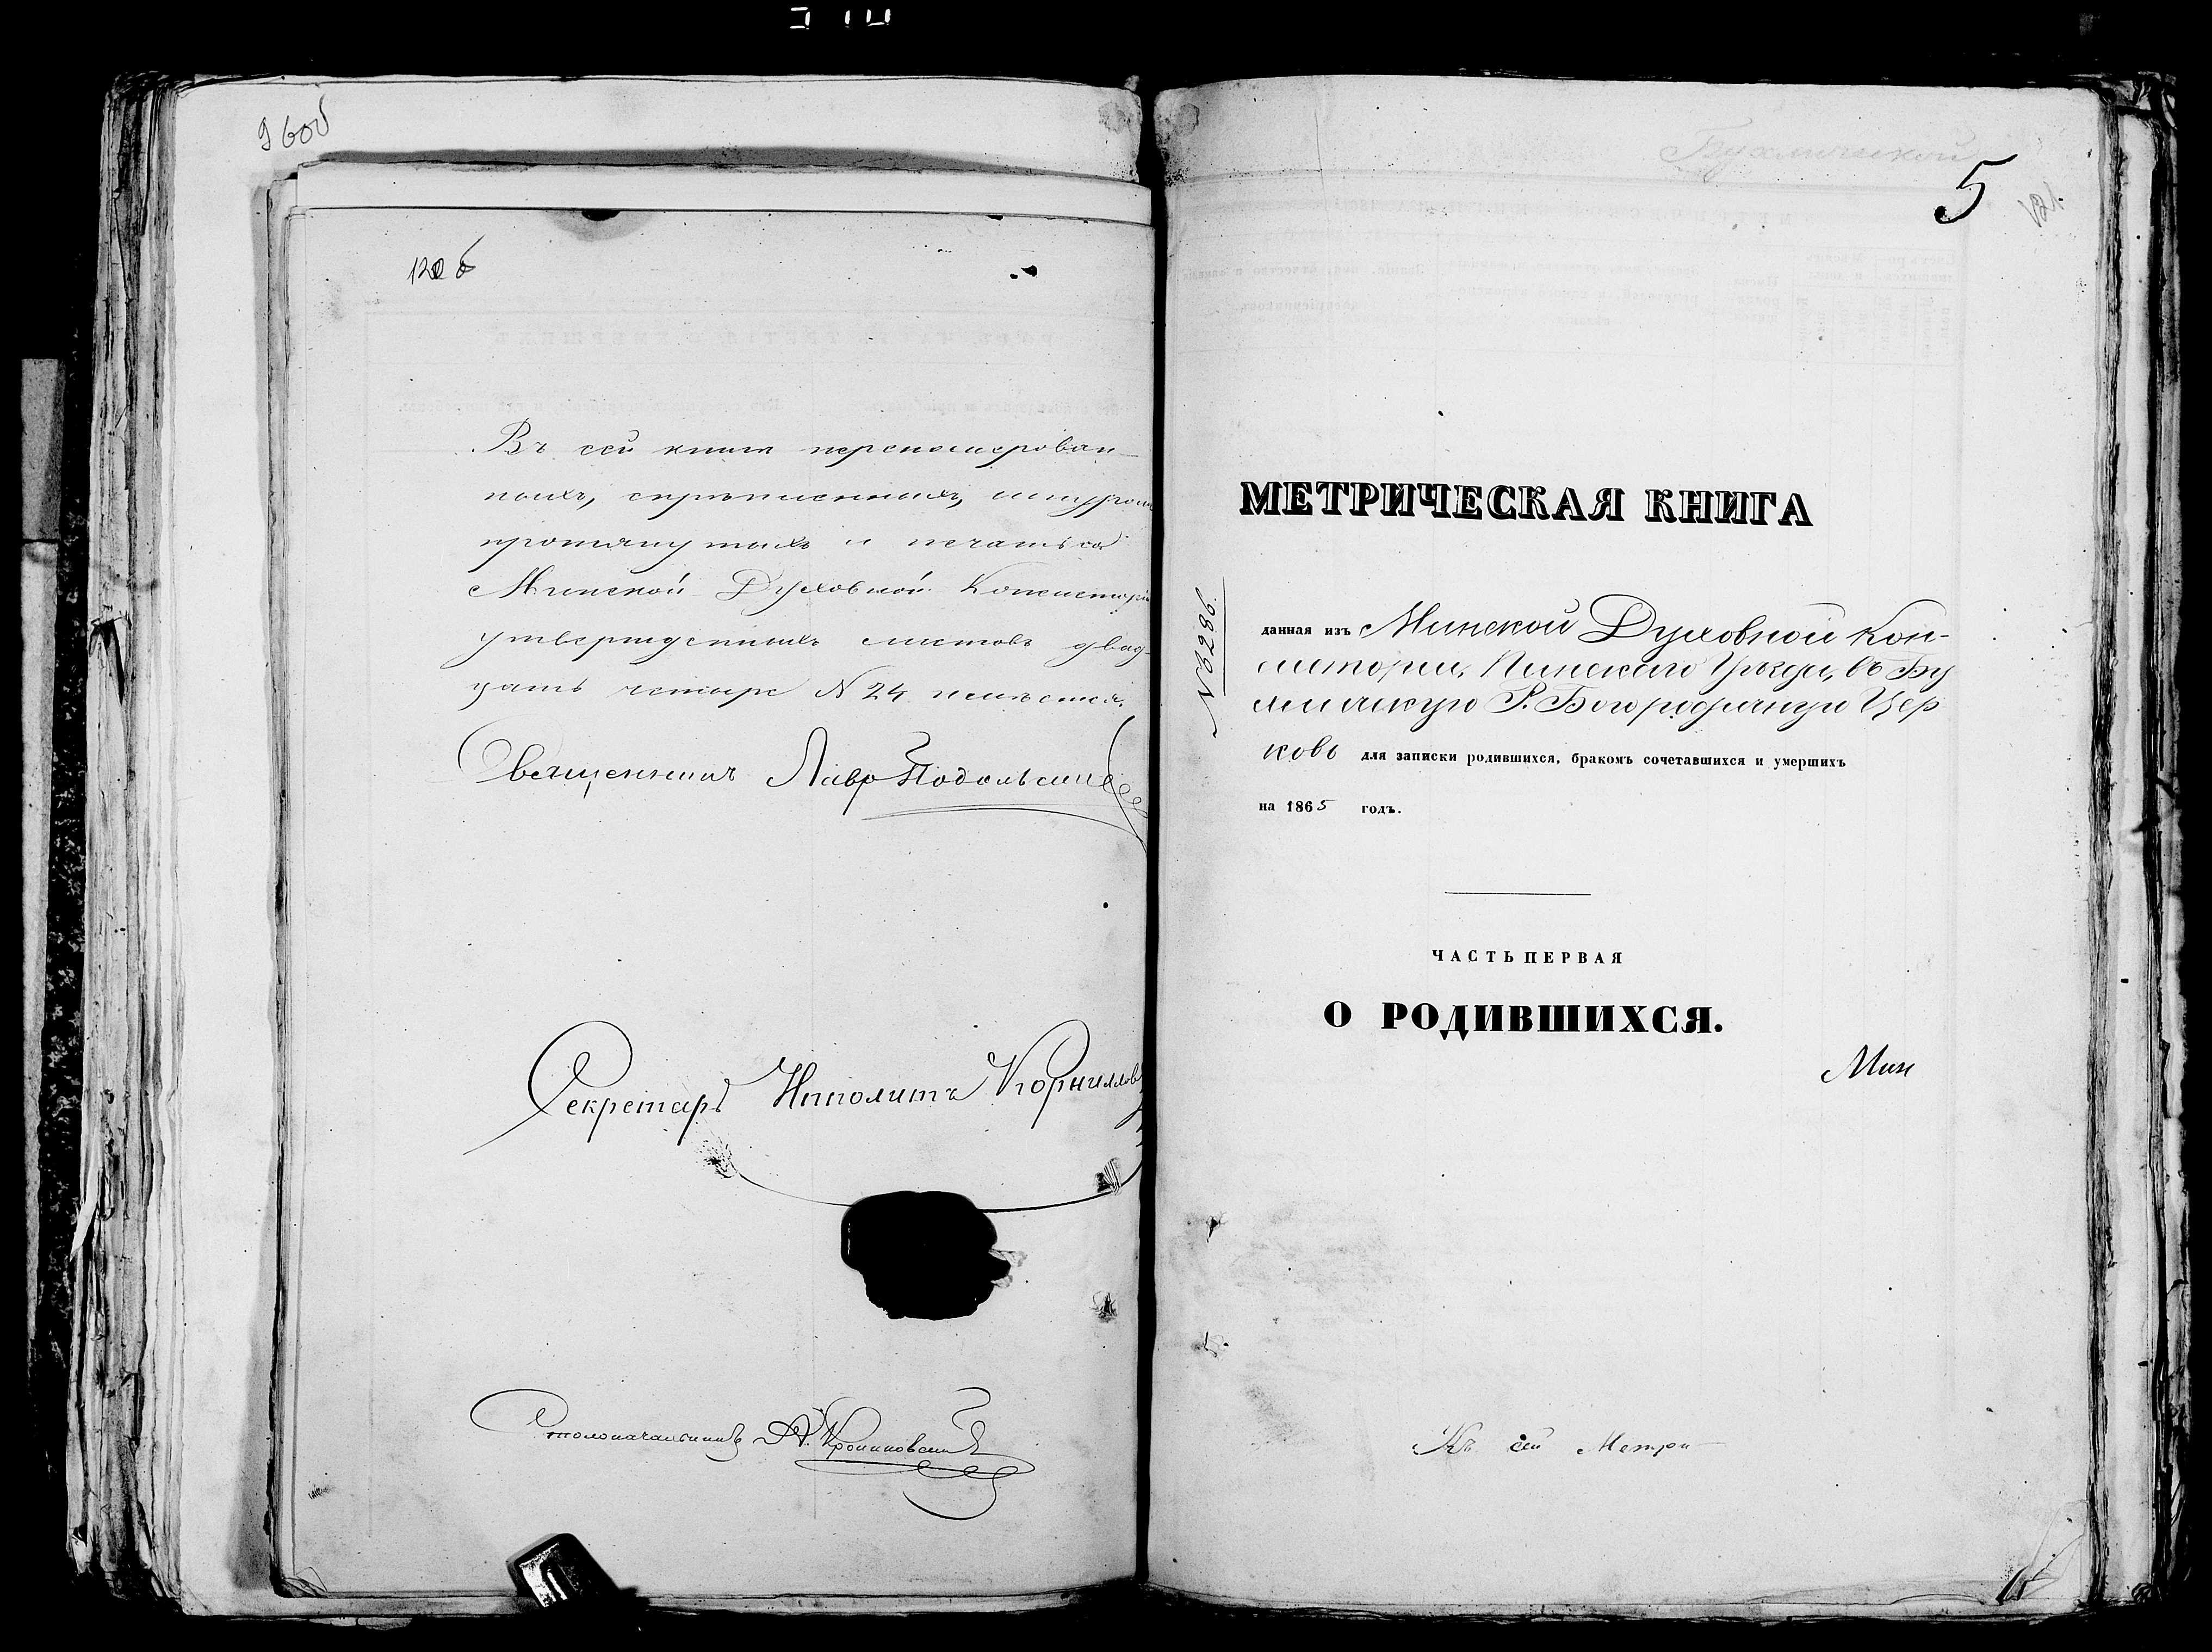 9 боб
120 б
Въ сей книгѣ перенумерован-
ныхъ, скрѣпленныхъ, шнуромъ
протянутыхъ и печатью
Минской Духовной Консисторіи
утвержденныхъ листовъ двад-
цать четыре N 24 имѣется.
Священникъ Лавр Подольскій
Секретарь Ипполитъ Корнилов
Столоначальникъ А.
Бухличской
5
121
МЕТРИЧЕСКАЯ КНИГА
N 9286.
данная изъ Минской Духовной Кон-
систоріи, Пинскаго Уѣзда, въ Бу
хличскую Р. Богородичную Цер
ковь для записки родившихся, бракомъ сочетавшихся и умершихъ
на 1865 годъ.
ЧАСТЬ ПЕРВАЯ
О РОДИВШИХСЯ.
Мин
Къ сей Метри